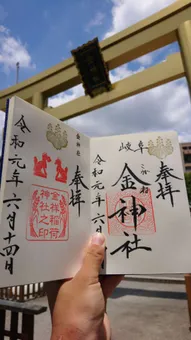 岐阜
奉拝
こがね
金神社
令和元年六月
奉拝
金神社
金祥稲荷
神社之印
令和元年六月十四日